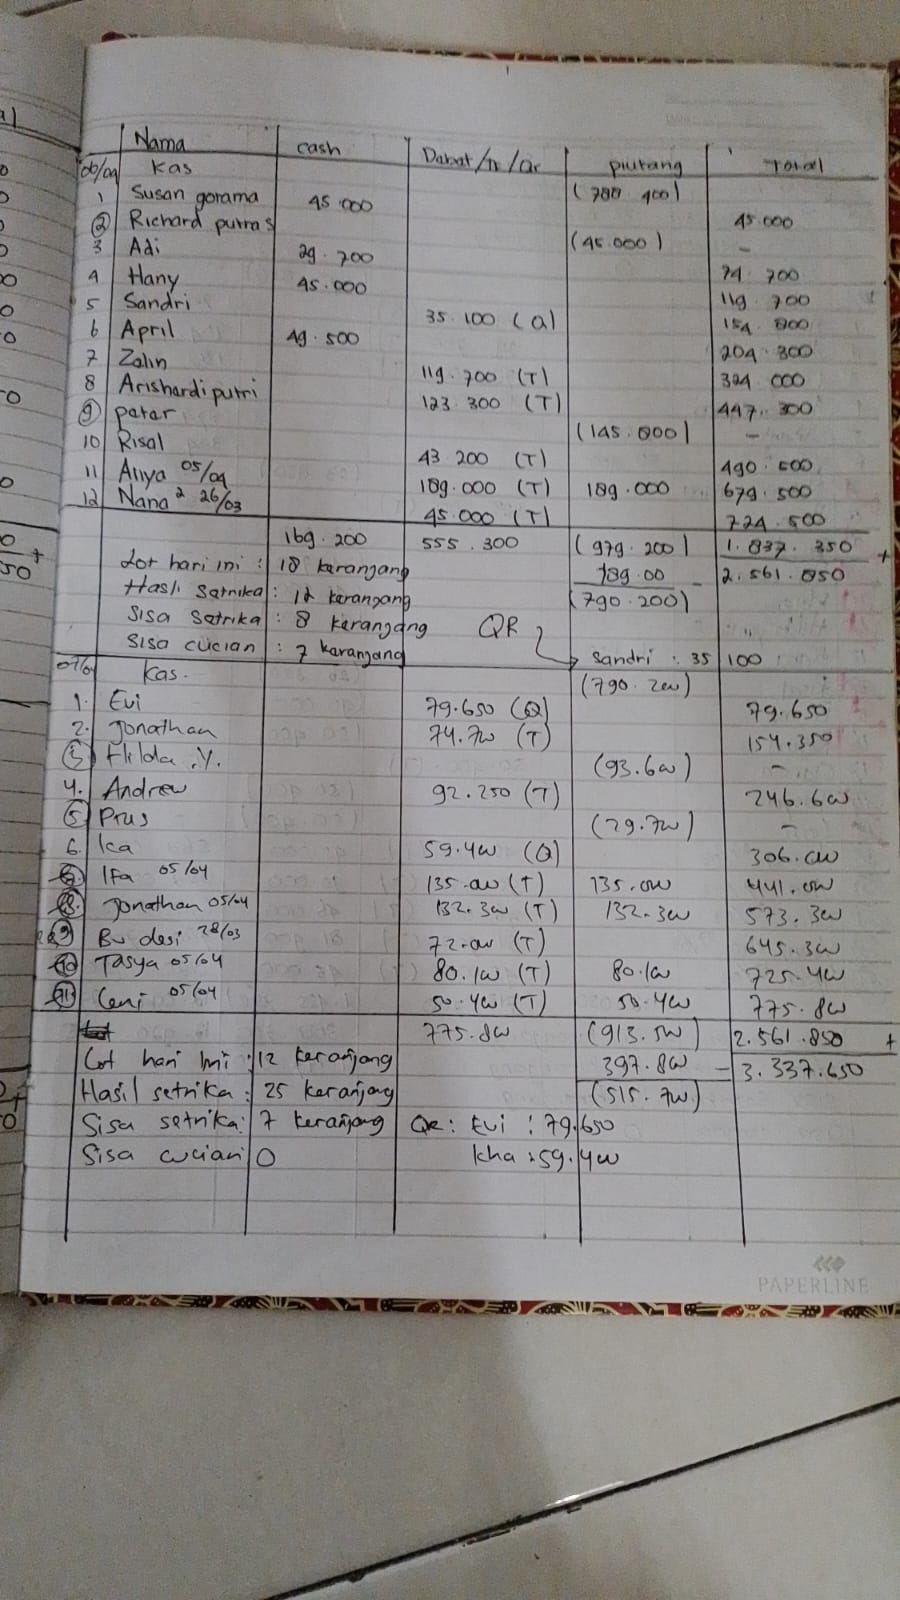 Nama cash Debet/Tr/Qr piutang Total
06/04 Kas (788 400)
1 Susan gorama 45.000 45.000
2 Richard putra s (45.000) -
3 Adi 29.700 74.700
4 Hany 45.000 119.700
5 Sandri 35.100 (Q) 154.800
6 April 49.500 204.300
7 Zalin 119.700 (T) 324.000
8 Arishardi putri 123.300 (T) 447.300
9 petar (145.800) -
10 Risal 43 200 (T) 490.500
11 Aliya 05/04 189.000 (T) 189.000 679.500
12 Nana² 26/03 45.000 (T) 724.500
169.200 555.300 (979.200) 1.837.350 +
Lot hari ini : 18 keranjang 189.00 - 2.561.850
Hasil Setrika : 12 keranjang (790.200)
Sisa Setrika : 8 keranjang QR
Sisa cucian : 7 keranjang Sandri : 35 100
07/04 Kas. (790.200)
1. Evi 79.650 (Q) 79.650
2. Jonathan 74.700 (T) 154.350
3 .Y. (93.600) -
4. Andrew 92.250 (T) 246.600
5 Prus (29.700) -
6. Ica 59.400 (Q) 306.000
Ifa 05/04 135.000 (T) 135.000 441.000
8. Jonathan 05/04 132.300 (T) 132.300 573.300
9 Bu desi 28/03 72.000 (T) 645.300
10 Tasya 05/04 80.100 (T) 80.100 725.400
11 Ceni 05/04 50.400 (T) 50.400 775.800
775.800 (913.500) 2.561.850 +
Lot hari ini : 12 keranjang 397.800 - 3.337.650
Hasil setrika : 25 keranjang (515.700)
Sisa setrika : 7 keranjang Qr : Evi : 79.650
Sisa cucian 0 kha : 59.400
PAPERLINE